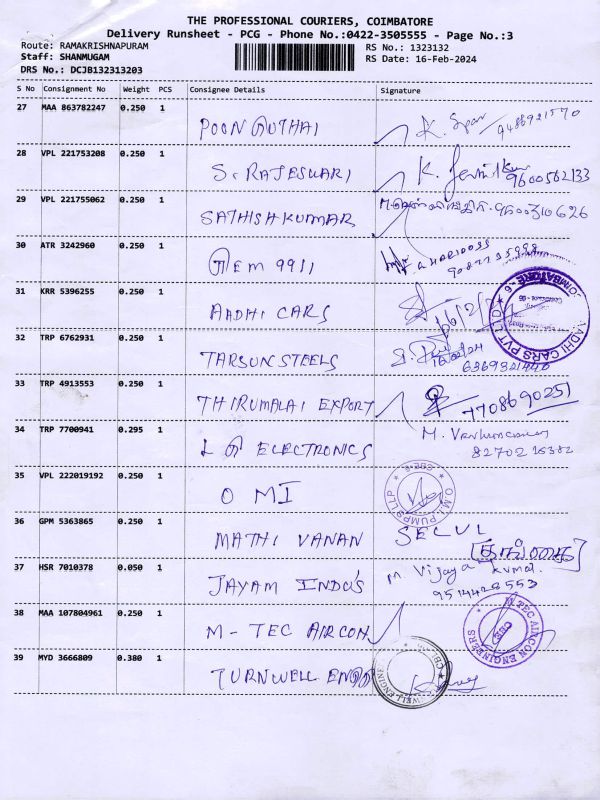 THE PROFESSIONAL COURIERS, COIMBATORE
Delivery Runsheet - PCG - Phone No.:0422-3505555 - Page No.:3
Route: RAMAKRISHNAPURAM RS No.: 1323132
Staff: SHANMUGAM RS Date: 16-Feb-2024
DRS No.: DCJB132313203
S No Consignment No Weight PCS Consignee Details Signature
27 MAA 863782247 0.250 1 POONGOTHAI
28 VPL 221753208 0.250 1 S. RAJESWARI K. 9600562133
29 VPL 221755062 0.250 1 SATHISH KUMAR
30 ATR 3242960 0.250 1 GEM 9911 HARIDOSS
31 KRR 5396255 0.250 1 AADHI CARS AADHI CARS PVT LTD COIMBATORE
32 TRP 6762931 0.250 1 TARSUN STEELS 16/02/24
33 TRP 4913553 0.250 1 THIRUMALAI EXPORT 7708690251
34 TRP 7700941 0.295 1 L G ELECTRONICS M.
35 VPL 222019192 0.250 1 O MI O.M.I. PUMPS LLP CBE-6
36 GPM 5363865 0.250 1 MATHI VANAN SELVL
37 HSR 7010378 0.050 1 JAYAM INDO'S M. Vijaya Kumar 9514428553
38 MAA 107804961 0.250 1 M-TEC AIRCON M.TEC AIRCON ENGINEERS CBE
39 MYD 3666809 0.380 1 TURNWELL ENGG